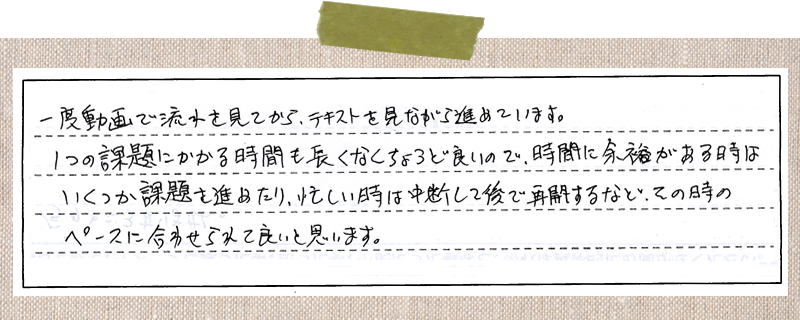 一度動画で流れを見てから、テキストを見ながら進めています。
1つの課題にかかる時間も長くなくちょうど良いので、時間に余裕がある時は
いくつか課題を進めたり、忙しい時は中断して後で再開するなど、その時の
ペースに合わせられて良いと思います。